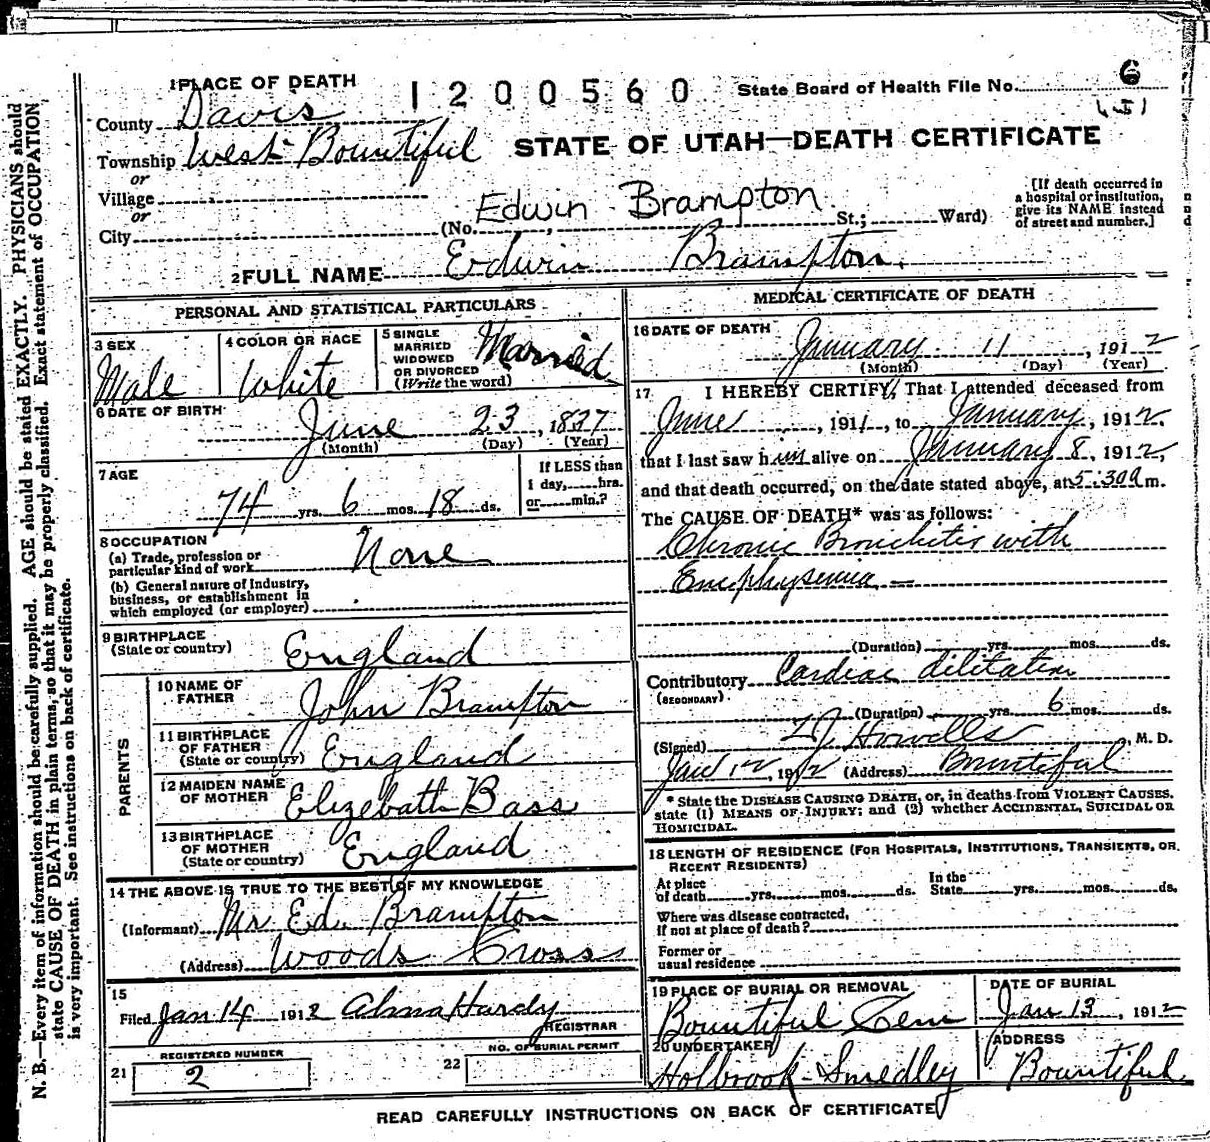 1 PLACE OF DEATH
1200560
State Board of Health File No. 6
County Davis
Township West Bountiful
STATE OF UTAH—DEATH CERTIFICATE
or
Village
or
City
(No. Edwin Brampton St.; Ward)
[If death occurred in
a hospital or institution,
give its NAME instead
of street and number.]
2 FULL NAME Edwin Brampton.
PERSONAL AND STATISTICAL PARTICULARS
3 SEX
Male
4 COLOR OR RACE
White
5 SINGLE
MARRIED
WIDOWED
OR DIVORCED
(Write the word)
Married
6 DATE OF BIRTH
June 23, 1837
(Month) (Day) (Year)
7 AGE
74 yrs. 6 mos. 18 ds.
If LESS than
1 day, hrs.
or min.?
8 OCCUPATION
(a) Trade, profession or
particular kind of work None
(b) General nature of Industry,
business, or establishment in
which employed (or employer)
9 BIRTHPLACE
(State or country) England
PARENTS
10 NAME OF
FATHER John Brampton
11 BIRTHPLACE
OF FATHER
(State or country) England
12 MAIDEN NAME
OF MOTHER Elizebath Bass
13 BIRTHPLACE
OF MOTHER
(State or country) England
14 THE ABOVE IS TRUE TO THE BEST OF MY KNOWLEDGE
(Informant) Mr Ed. Brampton
(Address) Woods Cross
15
Filed Jan 14 1912 Alma Hardy
REGISTRAR
REGISTERED NUMBER
21 2
NO. OF BURIAL PERMIT
22
MEDICAL CERTIFICATE OF DEATH
16 DATE OF DEATH
January 11, 1912
(Month) (Day) (Year)
17 I HEREBY CERTIFY, That I attended deceased from
June, 1911, to January, 1912,
that I last saw him alive on January 8, 1912,
and that death occurred, on the date stated above, at 5:30 a m.
The CAUSE OF DEATH* was as follows:
Chronic Bronchitis with
Emphysema
(Duration) yrs. mos. ds.
Contributory Cardiac dilitation
(SECONDARY)
(Duration) yrs. 6 mos. ds.
(Signed) Howells, M. D.
Jan 12, 1912 (Address) Bountiful
* State the DISEASE CAUSING DEATH, or, in deaths from VIOLENT CAUSES,
state (1) MEANS OF INJURY; and (2) whether ACCIDENTAL, SUICIDAL OR
HOMICIDAL.
18 LENGTH OF RESIDENCE (FOR HOSPITALS, INSTITUTIONS, TRANSIENTS, OR
RECENT RESIDENTS)
At place
of death yrs. mos. ds.
In the
State yrs. mos. ds.
Where was disease contracted,
if not at place of death?
Former or
usual residence
19 PLACE OF BURIAL OR REMOVAL
Bountiful Cem
DATE OF BURIAL
Jan 13, 1912
20 UNDERTAKER
Holbrook-Smedley
ADDRESS
Bountiful
READ CAREFULLY INSTRUCTIONS ON BACK OF CERTIFICATE
N. B.—Every item of information should be carefully supplied. AGE should be stated EXACTLY. PHYSICIANS should
state CAUSE OF DEATH in plain terms, so that it may be properly classified. Exact statement of OCCUPATION
is very important. See instructions on back of certificate.